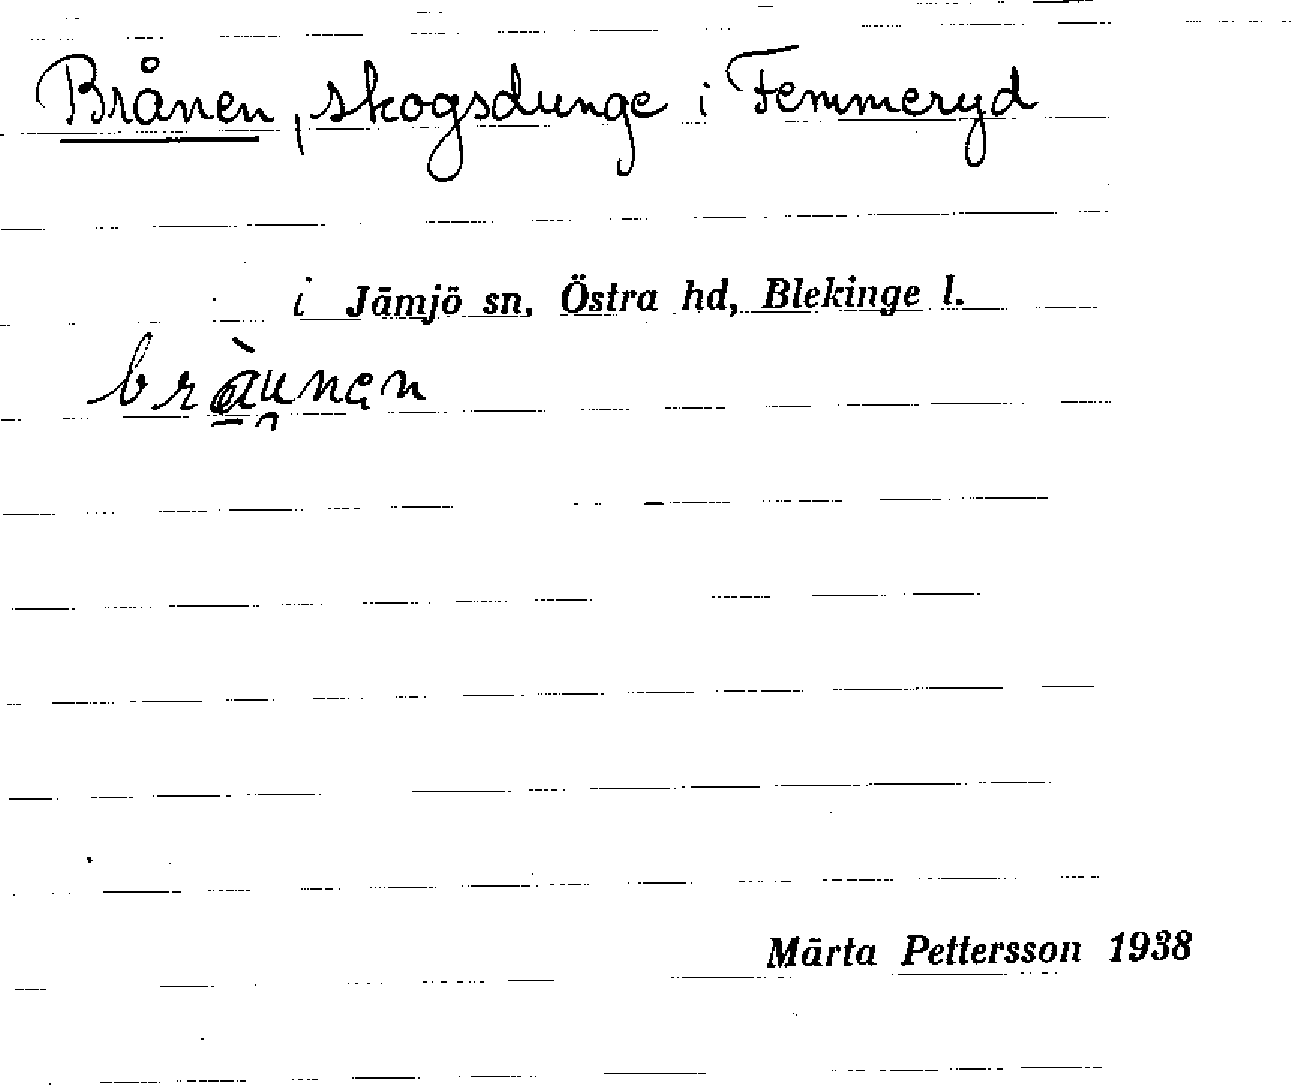 Brånen, skogsdunge i Femmeryd
i Jämjö sn, Östra hd, Blekinge l.
bràu̯nən
Märta Pettersson 1938